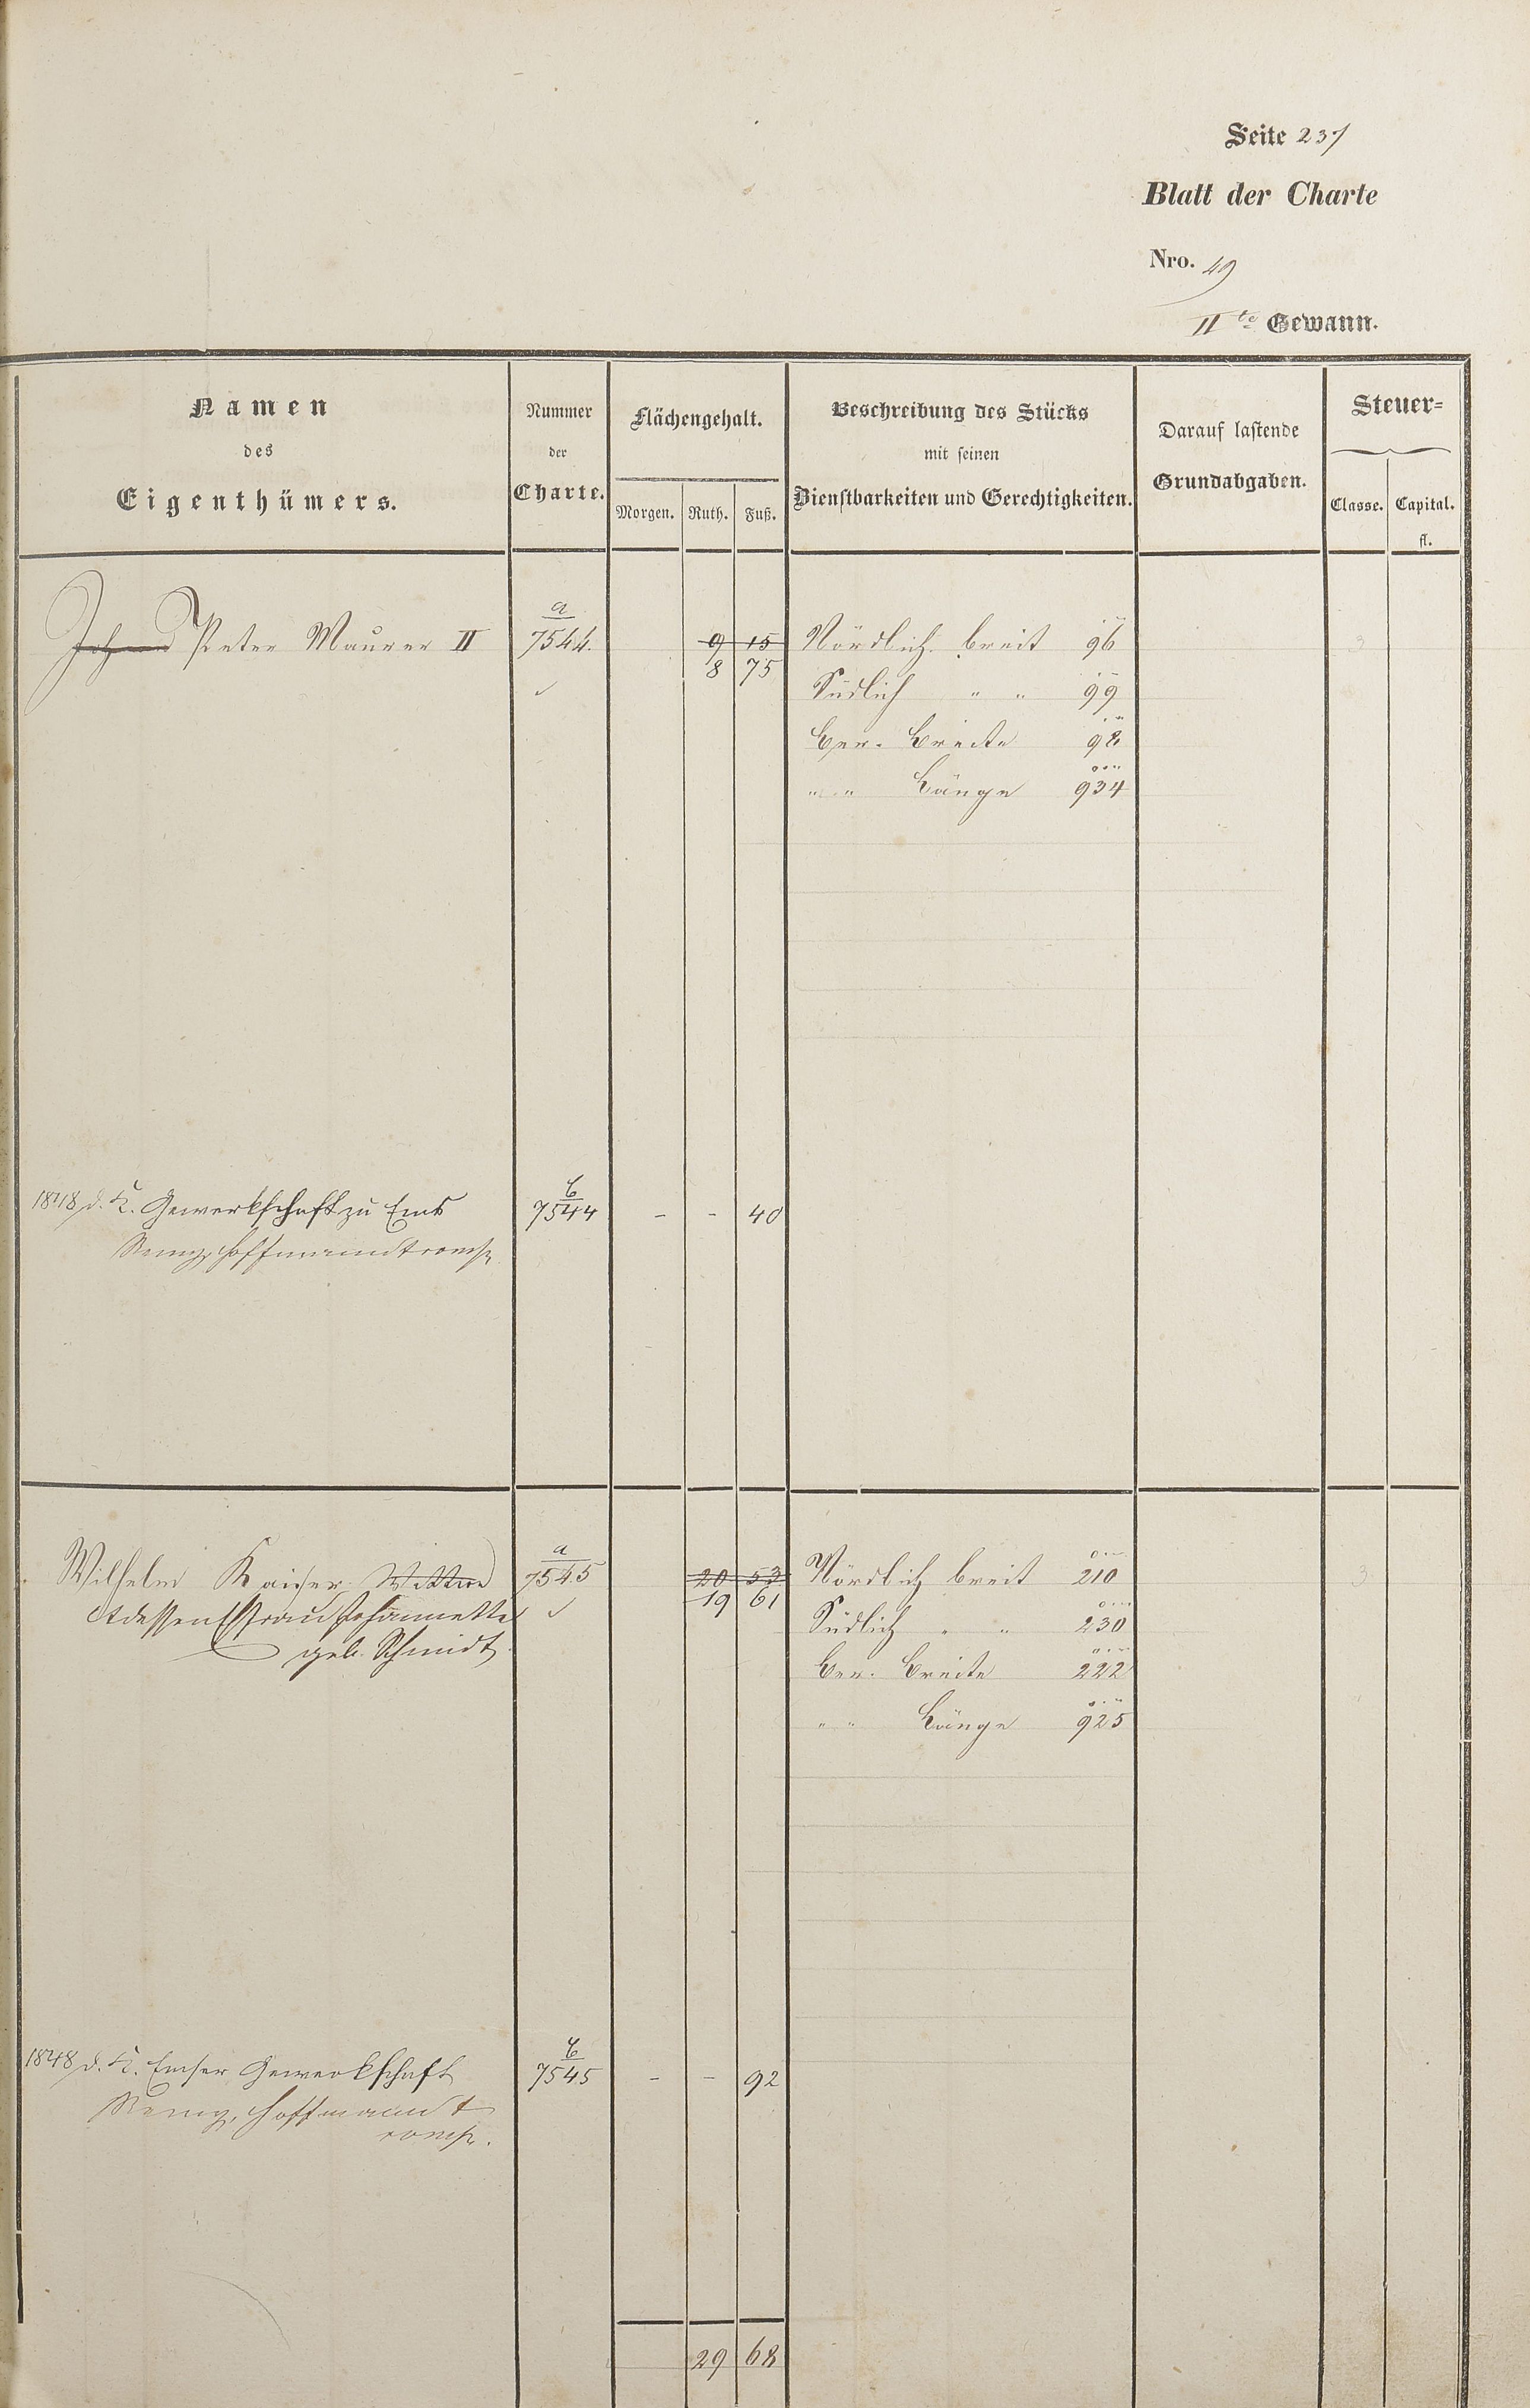 Seite 237
Blatt der Charte
Nro. 49
IIte Gewann.
Namen
des
Eigenthümers.
Nummer
der
Charte.
Flächengehalt.
Morgen. Ruth. Fuß.
Beschreibung des Stücks
mit seinen
Dienstbarkeiten und Gerechtigkeiten.
Darauf lastende
Grundabgaben.
Steuer=
Classe. Capital.
fl.
a
Johann Peter Maurer II 7544. 9 15 Nördlich breit 96 3
8 75
Südlich " " 99
Ger. Breite 98
" " Länge 934
b
1848 d. K. Gewerkschaft zu Ems 7544 - - 40
Remy, Hoffmann &
a
Wilhelm Kaiser Wittwe 7545 20 53 Nördlich breit 210 3
dessen Ehefrau Johannette 19 61
Südlich " " 230
geb. Schmidt
Ger. Breite 222
" " Länge 925
b
1848 d. K. Emser Gewerkschaft 7545 - - 92
Remy, Hoffmann &
29 68